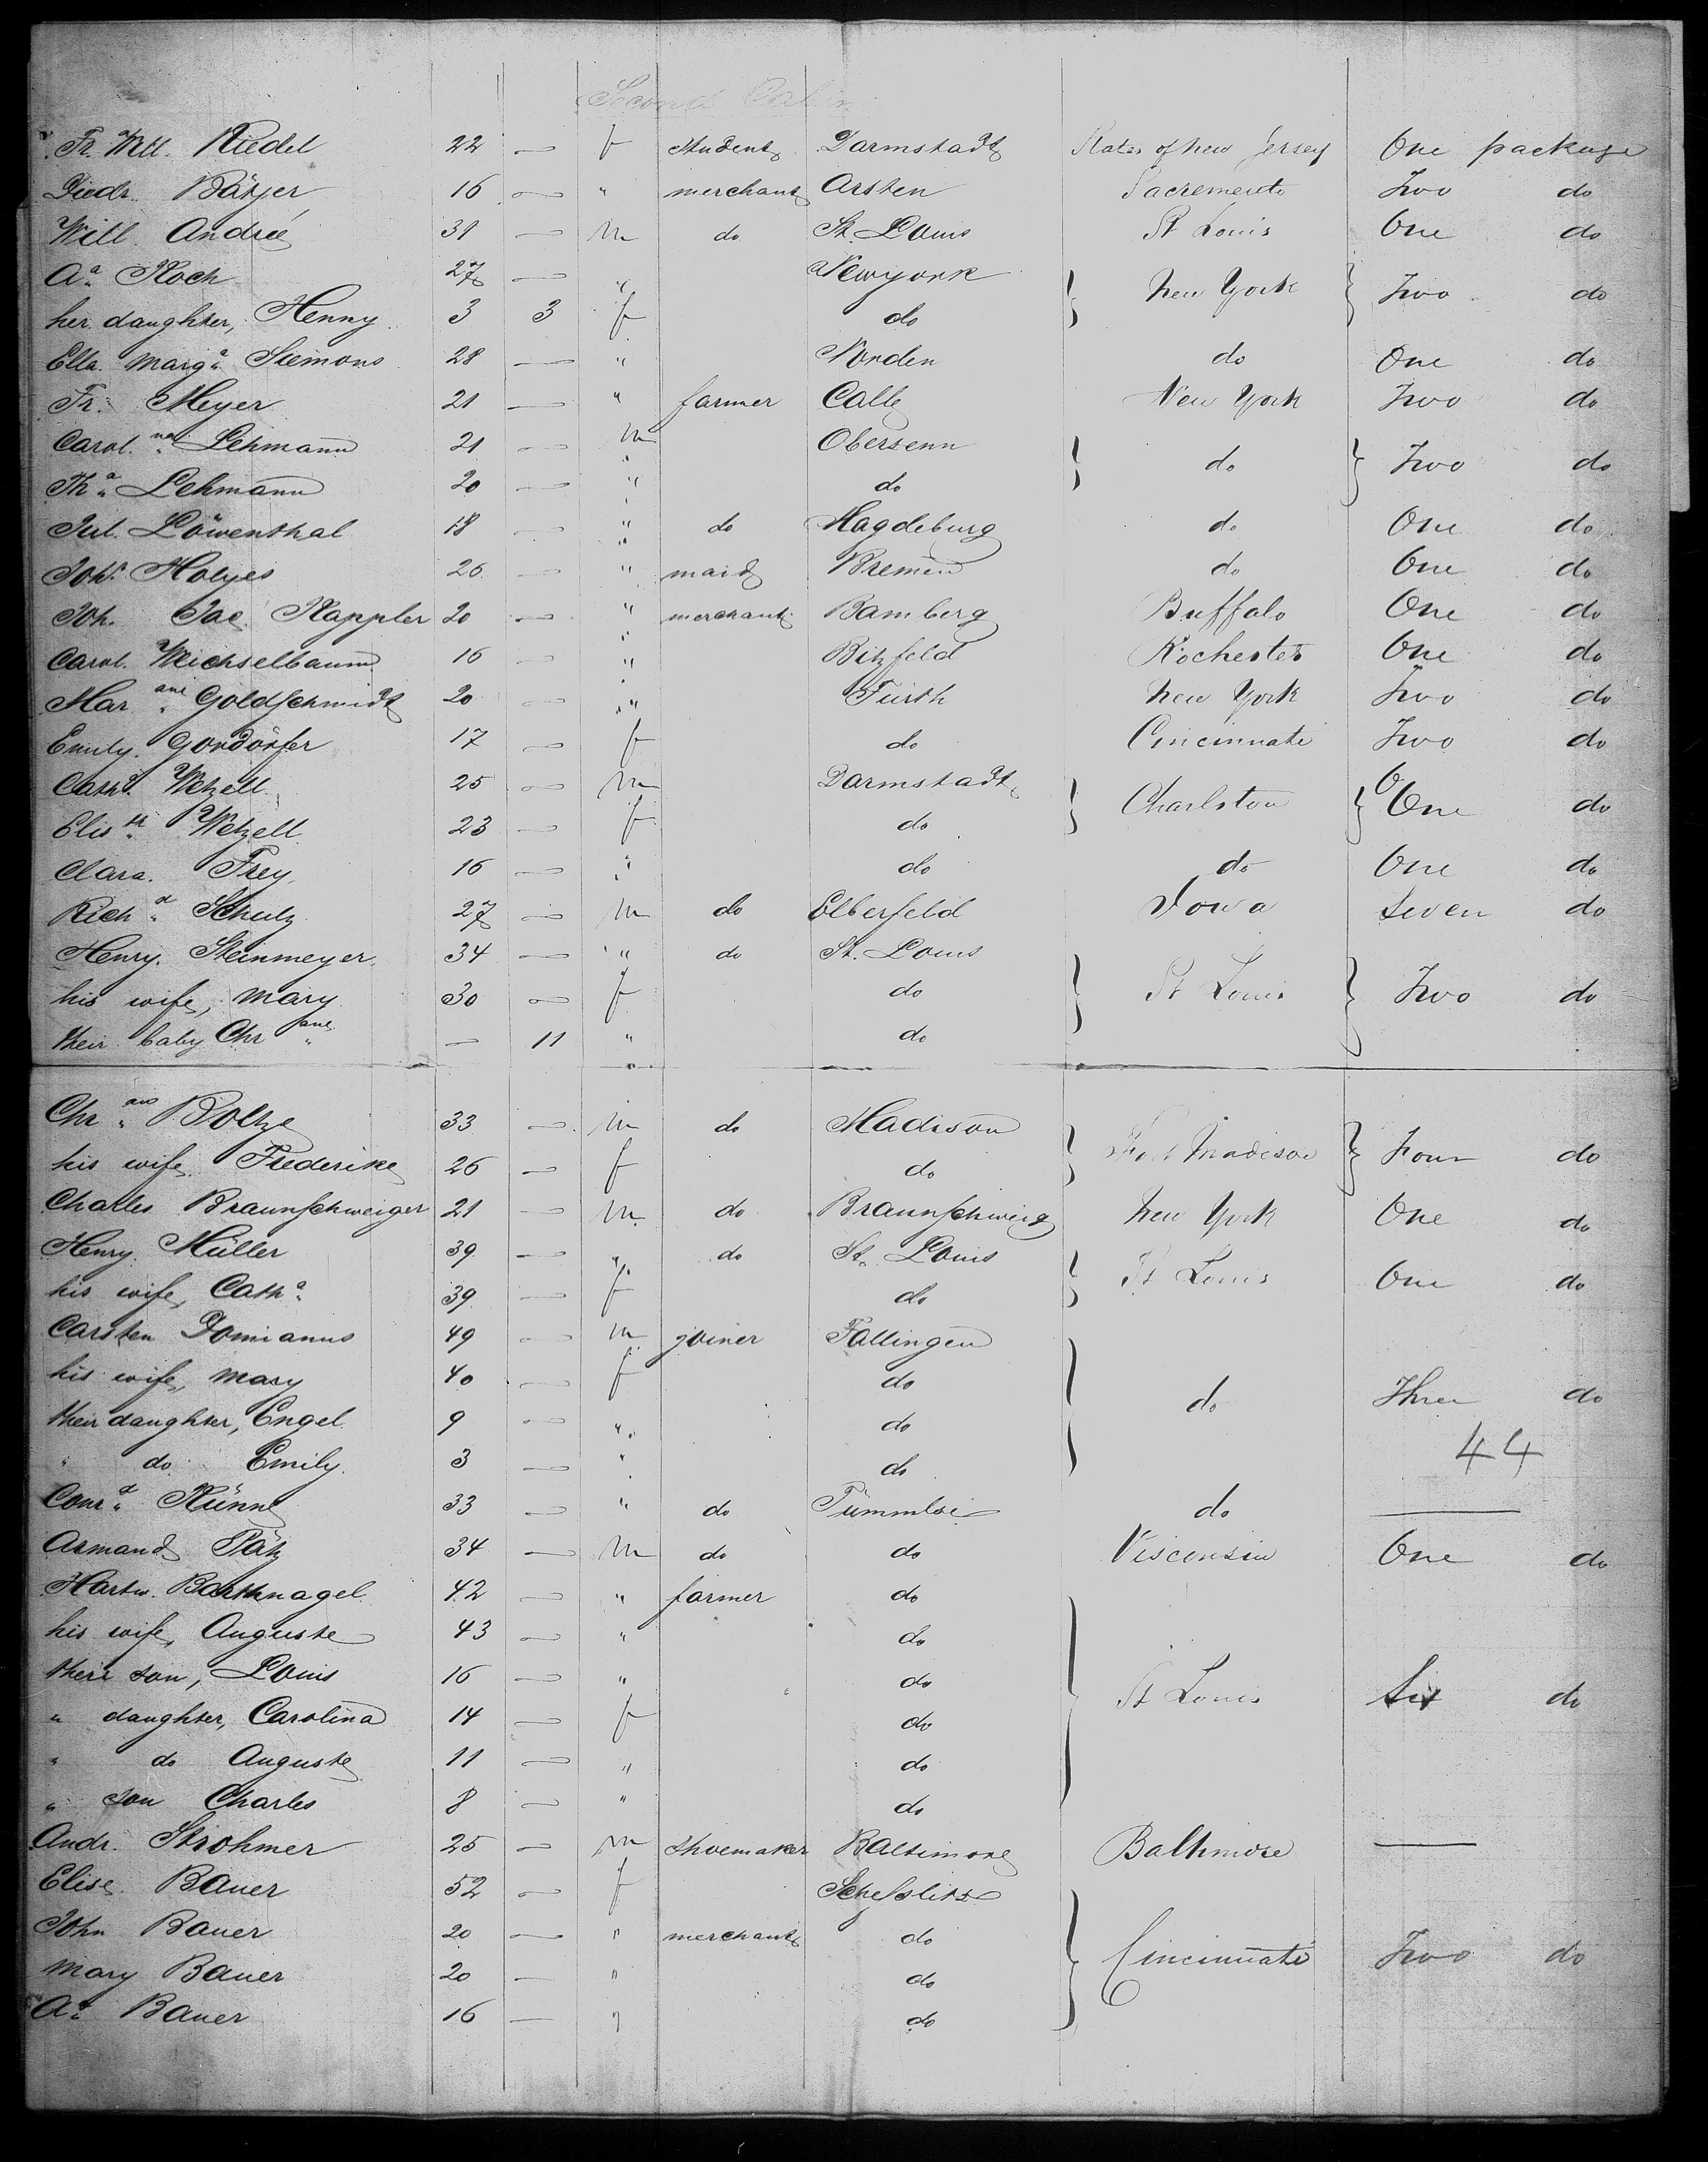 Second Cabin
Fr. Will. Riedel 22 — f student Darmstadt States of New Jersey One package
Diedr. Bätjer 16 — " merchant Arsten Sacremento Two do
Will. Andrée 31 — m do St. Louis St Louis One do
Aa. Koch 27 — " Newyork } New York } Two do
her daughter, Henny 3 3 f do
Ella. Marga. Siemons 28 — " Norden do One do
Fr. Meyer 21 — " farmer Calle New York Two do
Carol. na Lehmann 21 — m Obersenn } do } Two do
Tha. Lehmann 20 — " do
Jul. Löwenthal 18 — " do Magdeburg do One do
Joha. Holyes 26 — " maid Bremen do One do
Joh. Jac. Kappler 20 — " merchant Bamberg Buffalo One do
Carol. Weichselbaum 16 — " Bitzfeld Rochester One do
Mar ane Goldschmidt 20 — " Fürth New York Two do
Emily. Gondörfer 17 — f do Cincinnate Two do
Catha. Wetzell 25 — m Darmstadt } Charlston } One do
Elisth. Wetzell 23 — f do
Clara. Frey 16 — " do do One do
Richd. Schulz 27 — m do Elberfeld Iowa Seven do
Henry. Steinmeyer 34 — " do St. Louis } St Louis } Two do
his wife, Mary 30 — f do
their baby Chr ane — 11 " do
Chr ans Boltze 33 — m do Madison } Fort Madison } Four do
his wife, Frederike 26 — f do
Charles Braunschweiger 21 — m do Braunschweig New York One do
Henry. Müller 39 — " do St. Louis } St Louis One do
his wife, Catha. 39 — f do
Carsten Domianus 49 — m joiner Fallingen } do Three do
his wife, Mary 40 — f do
their daughter, Engel 9 — " do
" do Emily. 3 — " do
44
Conrd. Künne 33 — " do Tümmler do —
Armand Pätz 34 — m do do Visconsin One do
Hartw. Barthnagel 42 — " farmer do } St Louis Six do
his wife, Auguste 43 — " do
their son, Louis 16 — " do
" daughter, Carolina 14 — f do
" do Auguste 11 — " do
" son Charles 8 — " do
Andr. Strohmer 25 — m shoemaker Baltimore Balthmore —
Elise. Bauer 52 — f Schesslitz } Cincinnate Two do
John Bauer 20 — " merchant do
Mary Bauer 20 — " do
Aa. Bauer 16 — " do